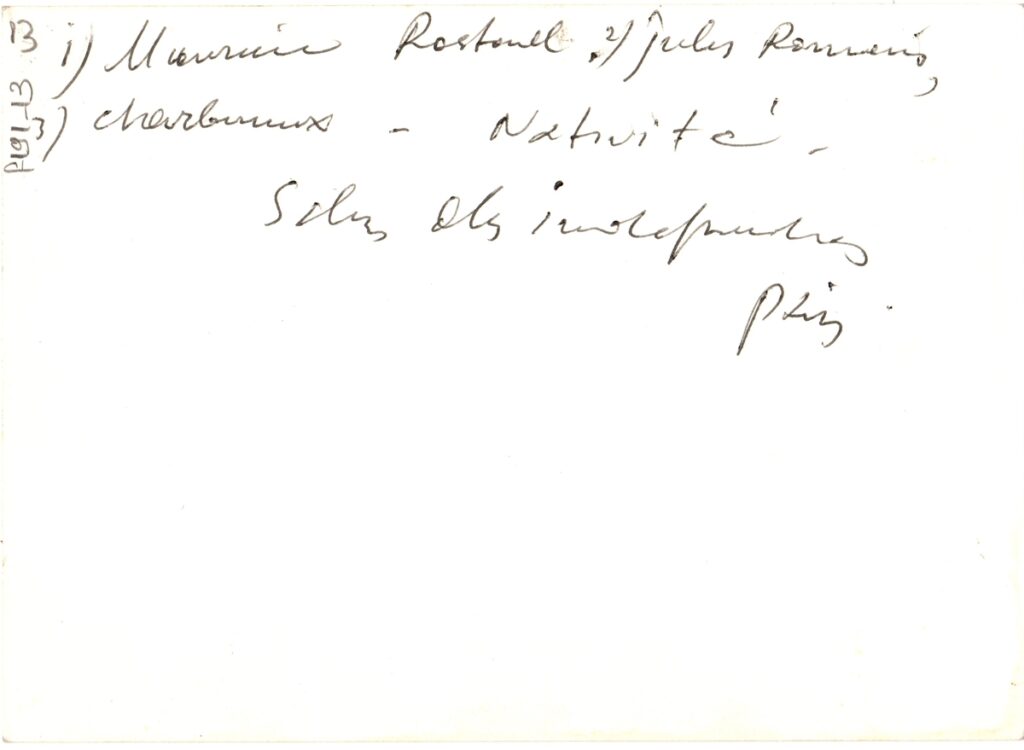 1) Maurice Rostand 2) Jules Romains,
3) Charbonnaux - Nativité -
Salon des indépendants
Paris.
P191-13
13